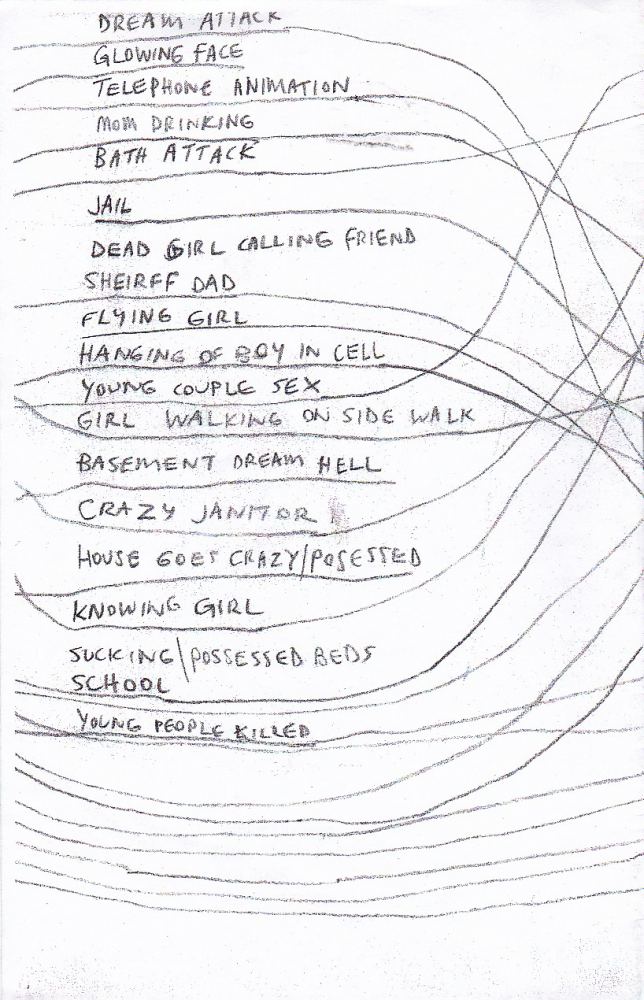 DREAM ATTACK
GLOWING FACE
TELEPHONE ANIMATION
MOM DRINKING
BATH ATTACK
JAIL
DEAD GIRL CALLING FRIEND
SHEIRFF DAD
FLYING GIRL
HANGING OF BOY IN CELL
YOUNG COUPLE SEX
GIRL WALKING ON SIDE WALK
BASEMENT DREAM HELL
CRAZY JANITOR
HOUSE GOES CRAZY/POSESSTED
KNOWING GIRL
SUCKING\POSSESSED BEDS
SCHOOL
YOUNG PEOPLE KILLED